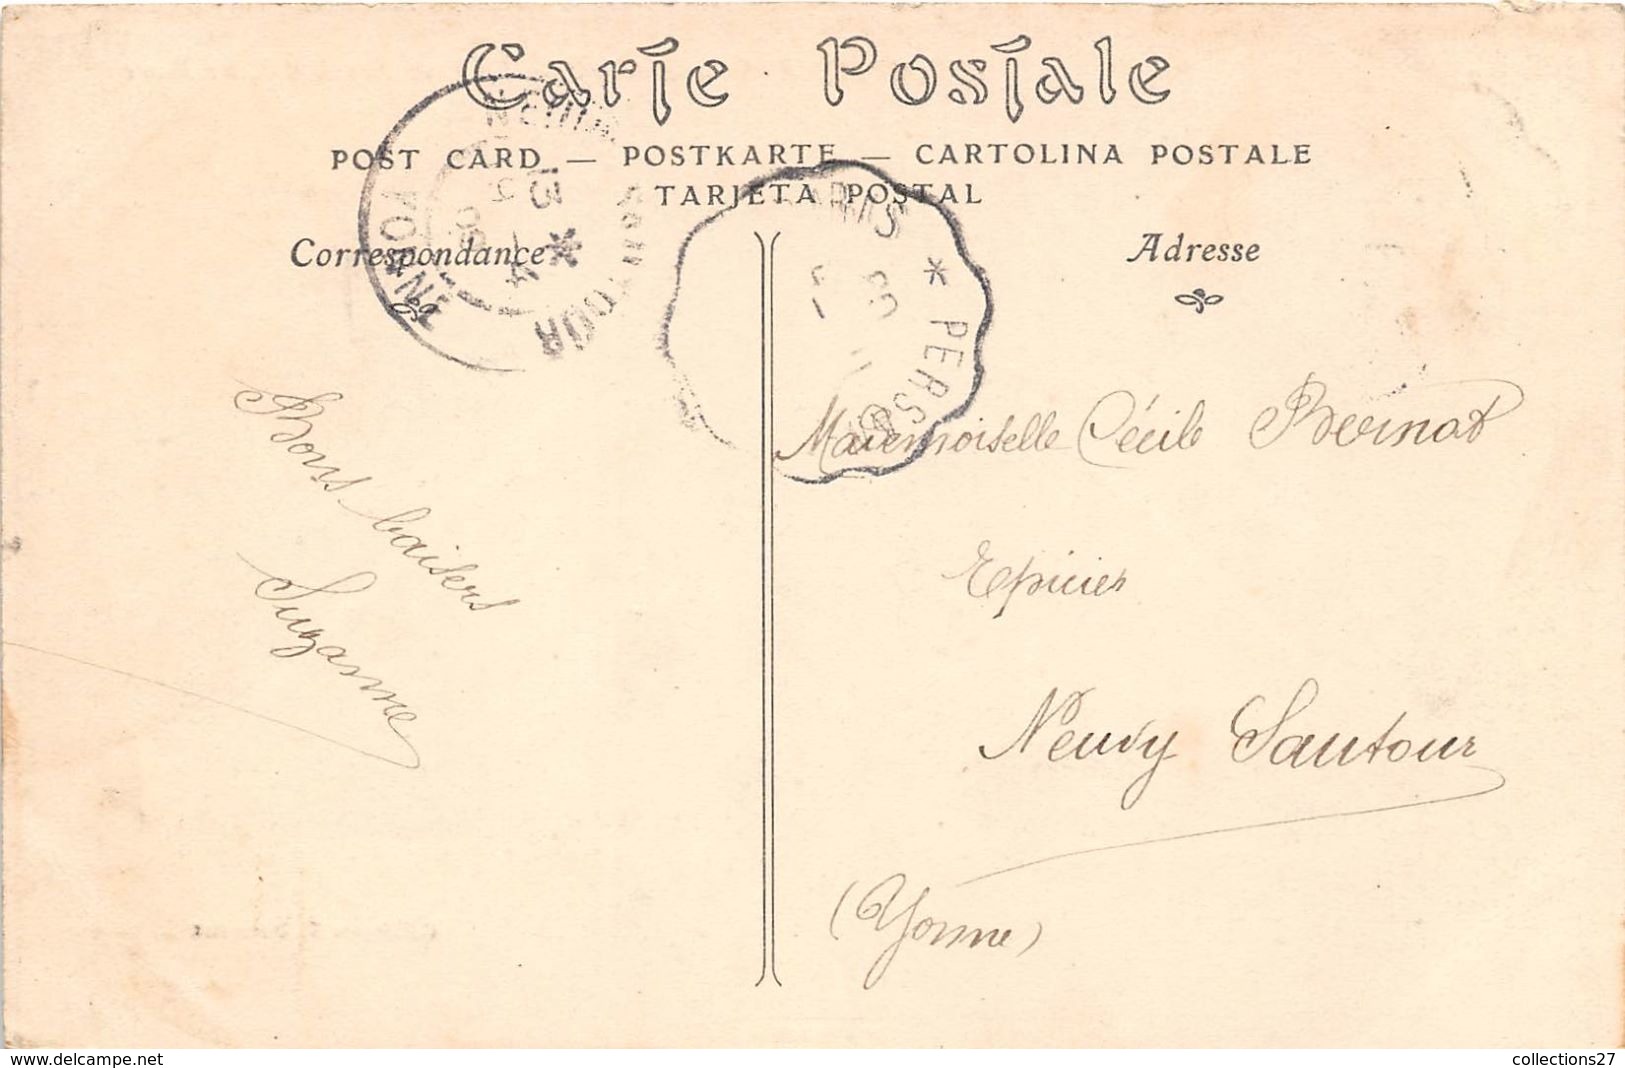 Carte Postale
POST CARD — POSTKARTE — CARTOLINA POSTALE
TARJETA POSTAL
Correspondance
Adresse
NEUVY SAUTOUR
YONNE
13
* PERS
Bons baisers
Suzanne
Mademoiselle Cécile Bernat
Epicier
Neuvy Sautour
(Yonne)
www.delcampe.net
collections27